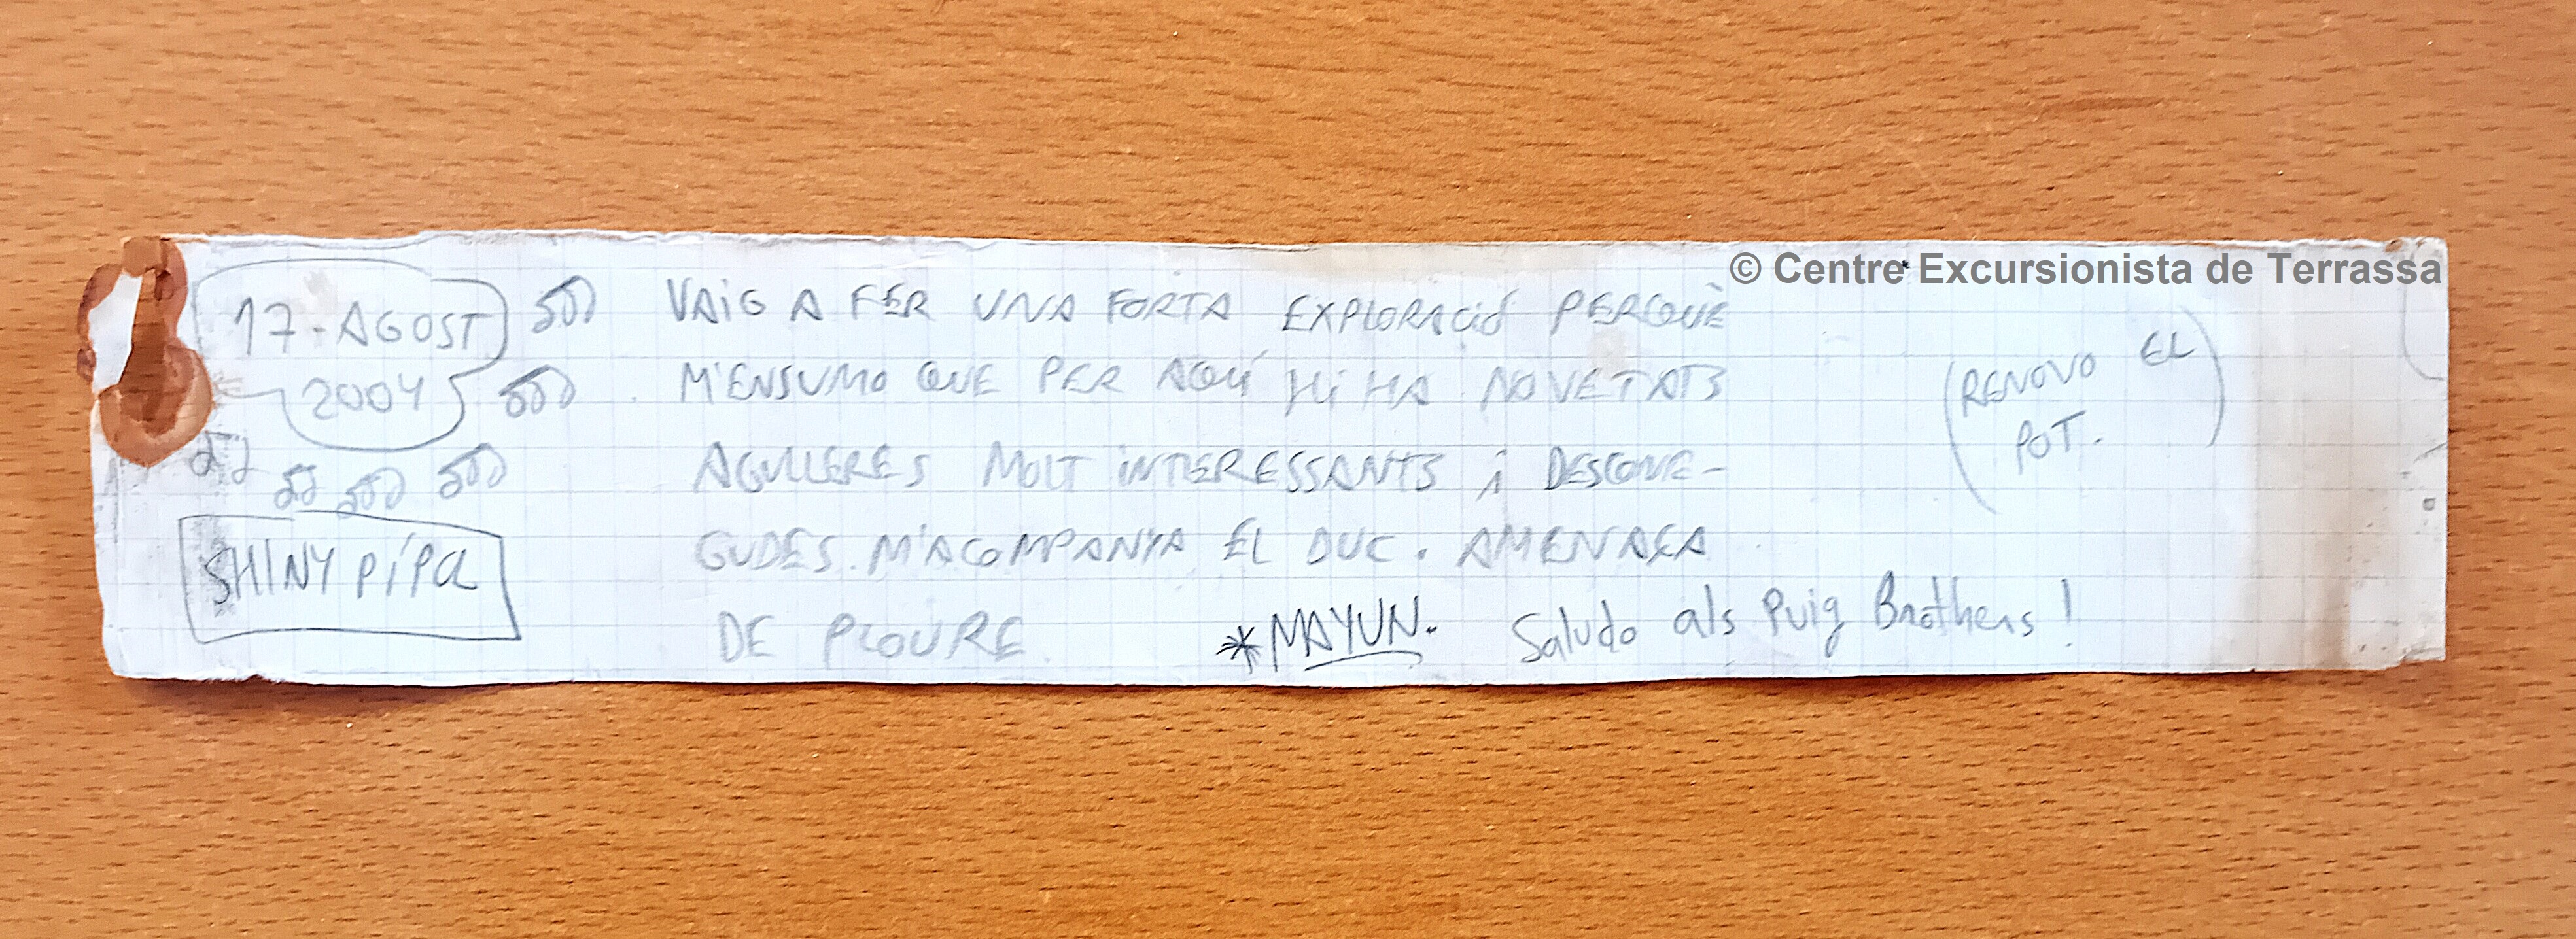 © Centre Excursionista de Terrassa
17-AGOST
2004
SHINY PÍPA
VAIG A FER UNA FORTA EXPLORACIÓ PERQUÈ
M'ENSUMO QUE PER AQUÍ HI HA NOVETATS
AGULLERES MOLT INTERESSANTS i DESCONE-
GUDES. M'ACOMPANYA EL DUC. AMENAÇA
DE PLOURE.
*MAYUN. Saludo als Puig Brothers!
(RENOVO EL
POT.)